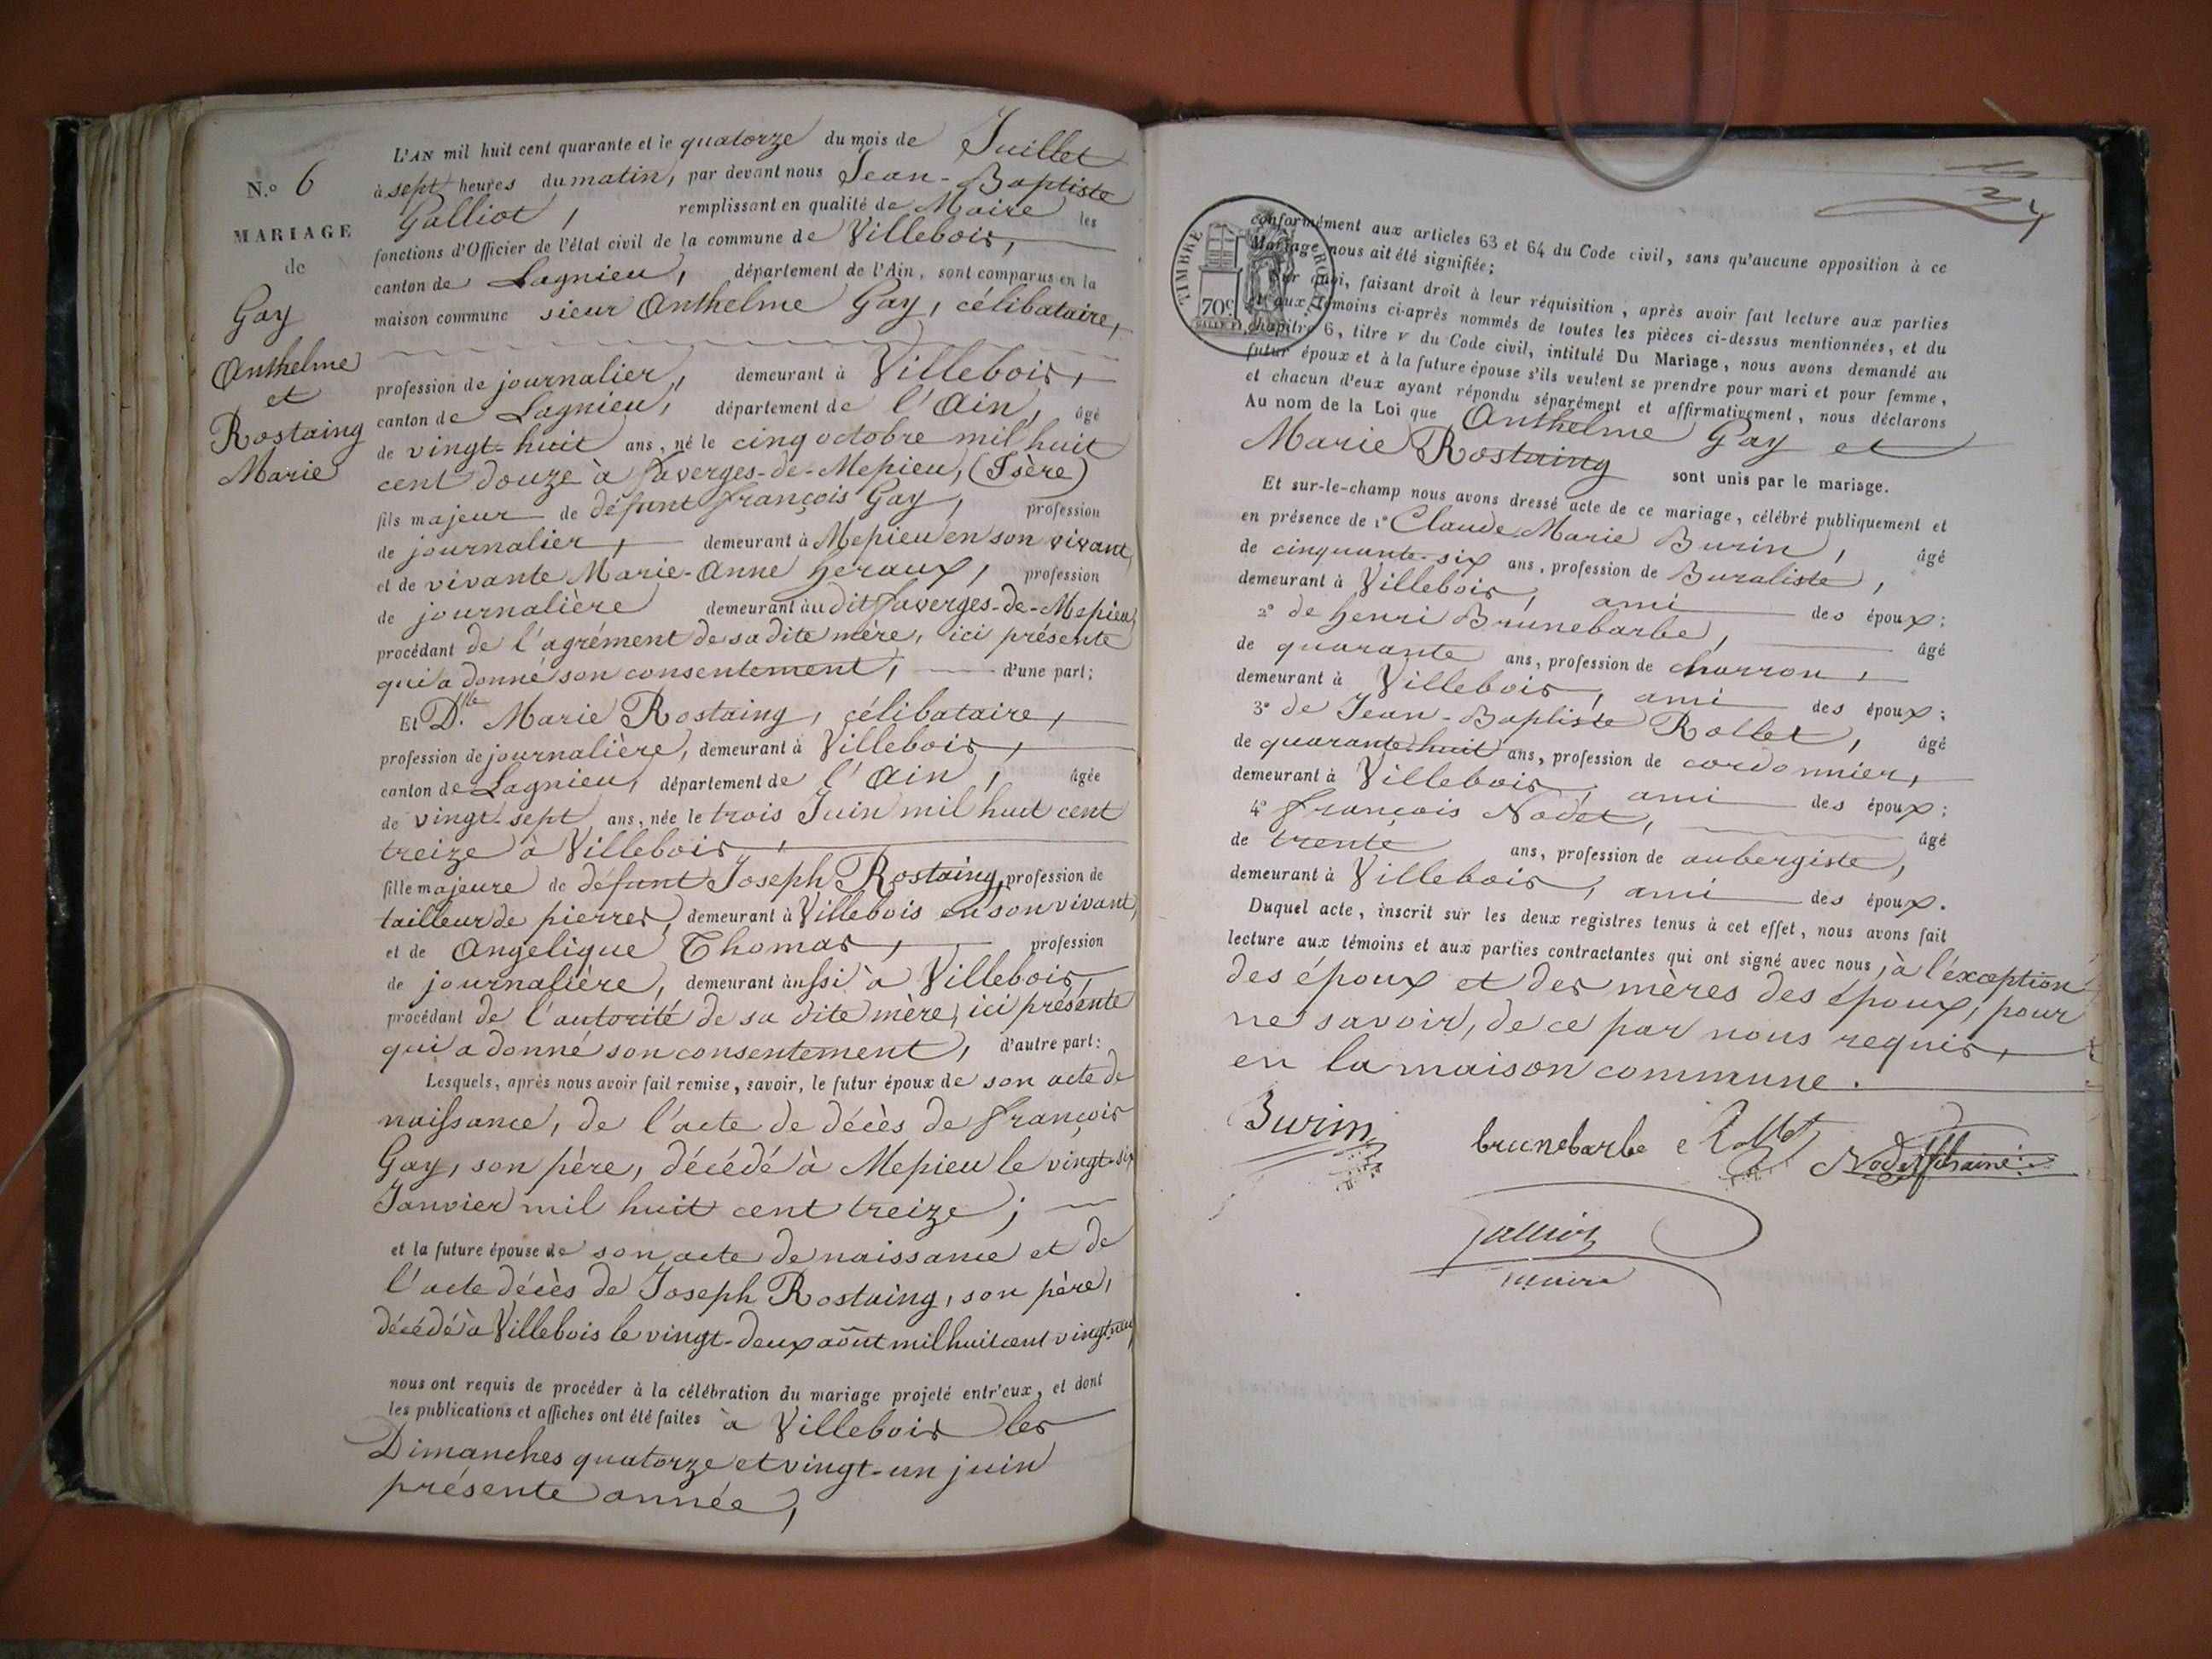 N.o 6
MARIAGE
de
Gay
Anthelme
et
Rostaing
Marie
L'AN mil huit cent quarante et le quatorze du mois de Juillet
à sept heures du matin, par devant nous Jean-Baptiste
Galliot, remplissant en qualité de Maire les
fonctions d'Officier de l'état civil de la commune de Villebois,
canton de Lagnieu, département de l'Ain, sont comparus en la
maison commune sieur Anthelme Gay, célibataire,
profession de journalier, demeurant à Villebois,
canton de Lagnieu, département de l'Ain, âgé
de vingt-huit ans, né le cinq octobre mil huit
cent douze à Faverges-de-Mepieu, (Isère)
fils majeur de défunt François Gay, profession
de journalier, demeurant à Mepieu en son vivant,
et de vivante Marie-Anne heraux, profession
de journalière demeurant àudit Faverges-de-Mepieu,
procédant de l'agrément de sa dite mère, ici présente
qui a donné son consentement, d'une part;
Et D.lle Marie Rostaing, célibataire,
profession de journalière, demeurant à Villebois,
canton de Lagnieu, département de l'Ain, âgée
de vingt-sept ans, née le trois Juin mil huit cent
treize à Villebois,
fille majeure de défunt Joseph Rostaing, profession de
tailleur de pierres, demeurant à Villebois en son vivant,
et de Angelique Thomas, profession
de journalière, demeurant àussi à Villebois,
procédant de l'autorité de sa dite mère, ici présente
qui a donné son consentement, d'autre part:
Lesquels, après nous avoir fait remise, savoir, le futur époux de son acte de
naissance, de l'acte de décès de François
Gay, son père, décédé à Mepieu le vingt-six
Janvier mil huit cent treize;
et la future épouse de son acte de naissance et de
l'acte décès de Joseph Rostaing, son père,
décédé à Villebois le vingt-deux août mil huit cent vingt-neuf
nous ont requis de procéder à la célébration du mariage projeté entr'eux, et dont
les publications et affiches ont été faites à Villebois les
Dimanches quatorze et vingt-un juin
présente année,
TIMBRE ROYAL
70c
conformément aux articles 63 et 64 du Code civil, sans qu'aucune opposition à ce
Mariage nous ait été signifiée;
Sur quoi, faisant droit à leur réquisition, après avoir fait lecture aux parties
et aux témoins ci-après nommés de toutes les pièces ci-dessus mentionnées, et du
chapitre 6, titre V du Code civil, intitulé Du Mariage, nous avons demandé au
futur époux et à la future épouse s'ils veulent se prendre pour mari et pour femme,
et chacun d'eux ayant répondu séparément et affirmativement, nous déclarons
Au nom de la Loi que Anthelme Gay et
Marie Rostaing sont unis par le mariage.
Et sur-le-champ nous avons dressé acte de ce mariage, célébré publiquement et
en présence de 1° Claude Marie Burin, âgé
de cinquante-six ans, profession de Buraliste,
demeurant à Villebois, ami des époux;
2° de henri Brunebarbe, âgé
de quarante ans, profession de charron,
demeurant à Villebois, ami des époux;
3° de Jean-Baptiste Rollet, âgé
de quarante huit ans, profession de cordonnier,
demeurant à Villebois, ami des époux;
4° François Nodet, âgé
de trente ans, profession de aubergiste,
demeurant à Villebois, ami des époux.
Duquel acte, inscrit sur les deux registres tenus à cet effet, nous avons fait
lecture aux témoins et aux parties contractantes qui ont signé avec nous, à l'exception
des époux et des mères des époux, pour
ne savoir, de ce par nous requis,
en la maison commune.
Burin brunebarbe Rollet Nodet
Galliot
maire